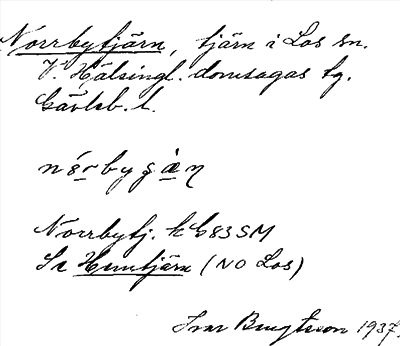 Norrbytjärn, tjärn i Los sn.
V. Hälsingl. domsagas tg.
Gävleb. l.
nórbyʂæ̀ṇ
Norrbytj. k G83SM
Se Hemtjärn (NO Los)
Ivar Bengtsson 1937.